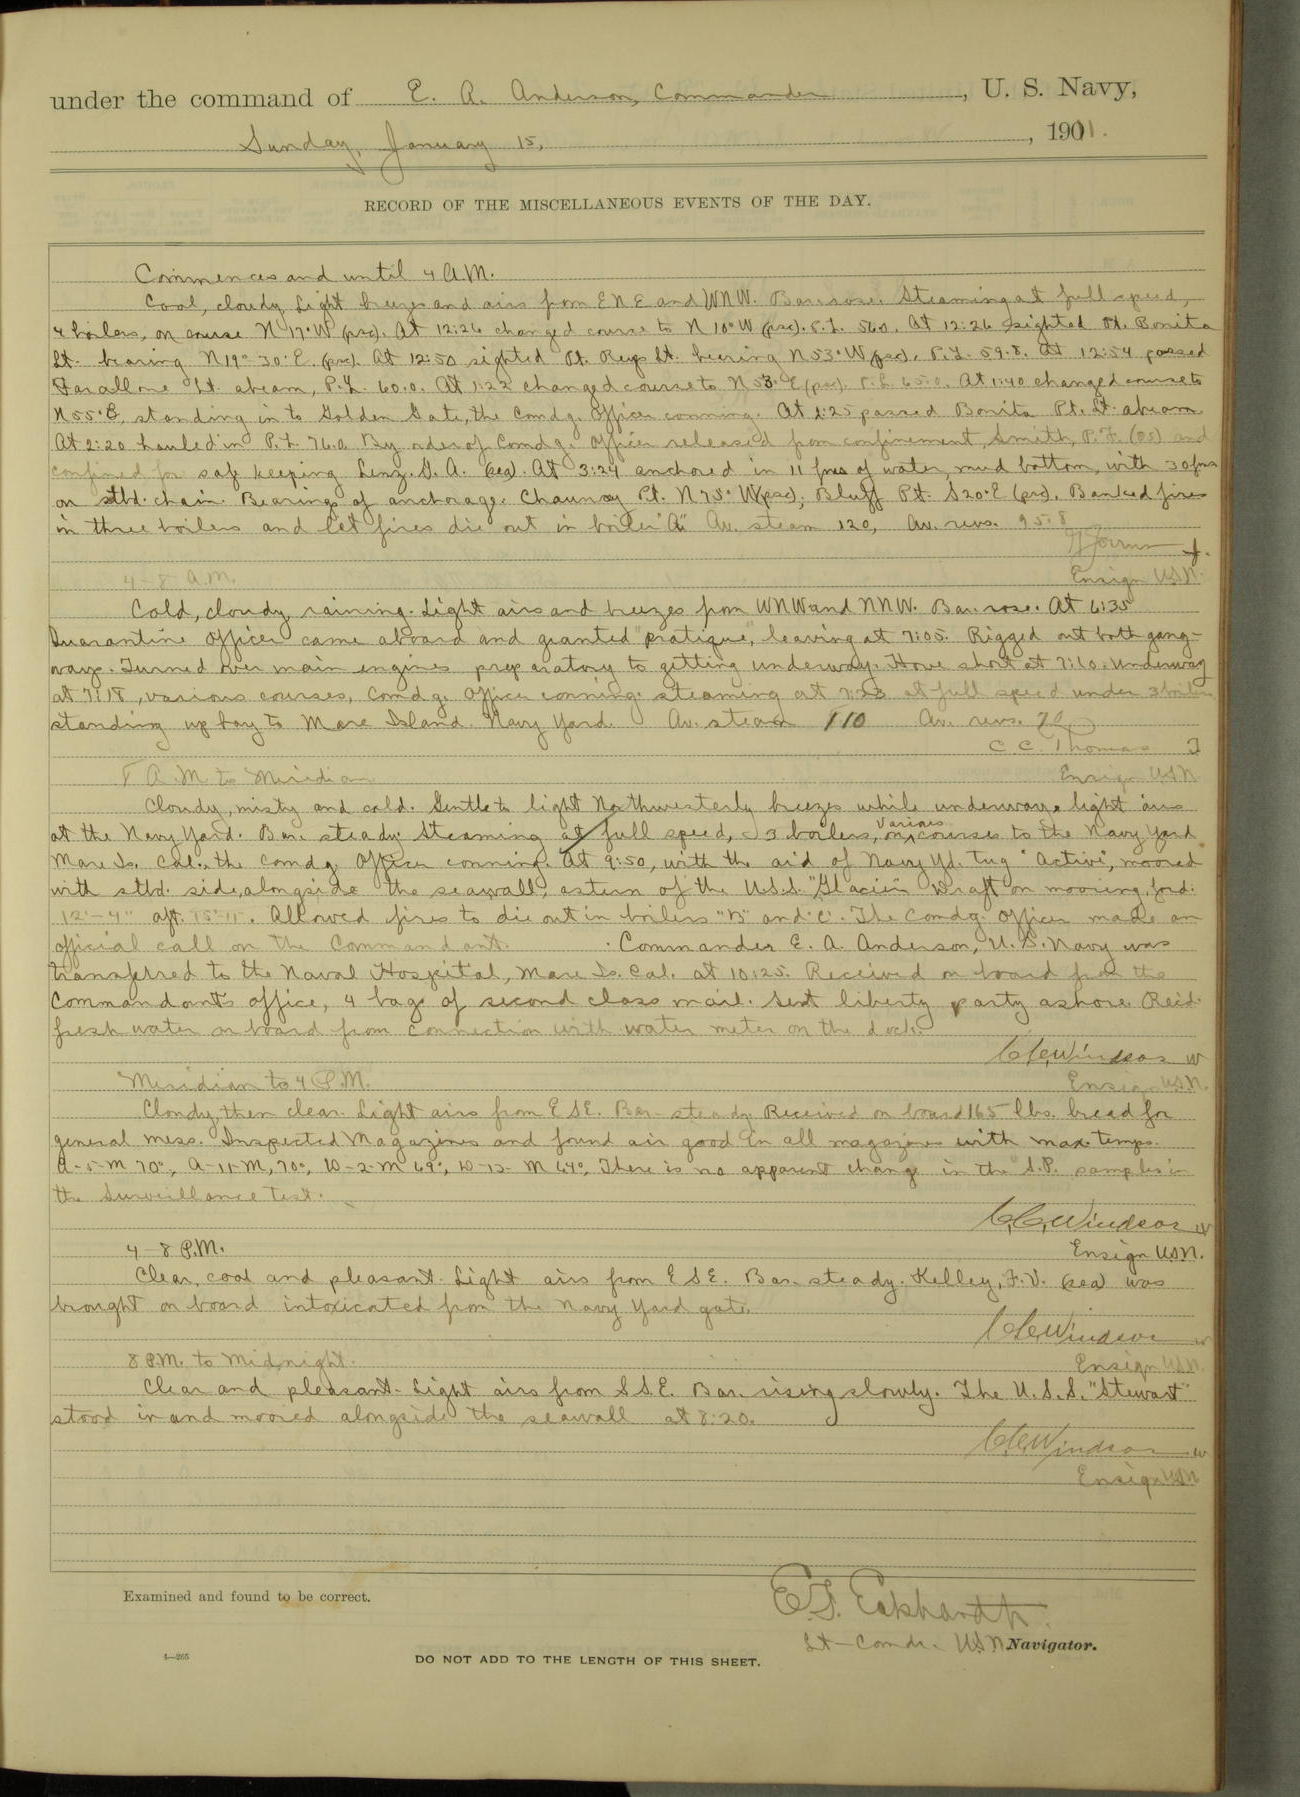 under the command of E. A. Anderson, Commander, U. S. Navy,
Sunday, January 15, 1901 1.
RECORD OF THE MISCELLANEOUS EVENTS OF THE DAY.
Commences and until 4 A.M.
Cool, cloudy. Light breezes and airs from ENE and WNW. Bar. rose. Steaming at full speed,
4 boilers, on course N 17° W (psc). At 12:26 changed course to N 10° W (psc). P.L. 56.0. At 12:26 sighted Pt. Bonita
Lt. bearing N 19° 30' E. (psc). At 12:50 sighted Pt. Reyes Lt. bearing N 53° W (psc). P.L. 59.8. At 12:54 passed
Farallone Lt. abeam, P.L. 60.0. At 1:22 changed course to N 53° E (psc). P.L. 65.0. At 1:40 changed course to
N 55° E, standing in to Golden Gate, the Comdg. Officer conning. At 2:25 passed Bonita Pt. Lt. abeam
At 2:20 hauled in P.L. 76.0. By order of Comdg. Officer released from confinement, Smith, P.F. (OS) and
confined for safe keeping Lenz. G. A. (sea). At 3:24 anchored in 11 fms of water, mud bottom, with 30 fms
on stbd. chain. Bearings of anchorage: Chauncy Pt. N 75° W (psc), Bluff Pt. S 20° E (psc). Banked fires
in three boilers and let fires die out in boiler "A". Av. steam 120, Av. revs. 95.8
Ensign U.S.N.
4-8 A.M.
Cold, cloudy, raining. Light airs and breezes from WNW and NNW. Bar. rose. At 6:35
Quarantine Officer came aboard and granted "pratique", leaving at 7:05. Rigged out both gang-
ways. Turned over main engines preparatory to getting underway. Hove short at 7:10. Underway
at 7:18, various courses, Comdg. Officer conning. steaming at 7:23 at full speed under 3 boilers
standing up bay to Mare Island Navy Yard. Av. steam 110 Av. revs. 70
C. C. Thomas
Ensign U.S.N.
8 A.M. to Meridian
Cloudy, misty and cold. Gentle to light Northwesterly breezes while underway, light airs
at the Navy Yard. Bar. steady. Steaming at full speed, 3 boilers, on various courses to the Navy Yard
Mare Is. Cal., the Comdg. Officer conning. At 9:50, with the aid of Navy Yd. Tug "Active", moored
with stbd. side, alongside the seawall, astern of the U.S.S. "Glacier". Draft on mooring, ford.
12'-4" aft 15'-11". Allowed fires to die out in boilers "B" and "C". The Comdg. Officer made an
official call on the Commandant. Commander E. A. Anderson, U. S. Navy was
transferred to the Naval Hospital, Mare Is. Cal. at 10:25. Received on board from the
Commandant's office, 4 bags of second class mail. Sent liberty party ashore. Recd.
fresh water on board from connection with water meter on the dock.
C.C. Windsor
Ensign U.S.N.
Meridian to 4 P.M.
Cloudy, then clear. Light airs from ESE. Bar. steady. Received on board 165 lbs. bread for
general mess. Inspected Magazines and found air good in all magazines with max. temps.
A-5-M 70°, A-11-M, 70°, D-2-M 69°, D-12-M 64°. There is no apparent change in the S.P. samples in
the Surveillance Test.
C.C. Windsor
Ensign U.S.N.
4-8 P.M.
Clear, cool and pleasant. Light airs from ESE. Bar. steady. Kelley, F. V. (sea) was
brought on board intoxicated from the Navy Yard gate.
C.C. Windsor
Ensign U.S.N.
8 P.M. to Midnight.
Clear and pleasant. Light airs from SSE. Bar. rising slowly. The U.S.S. "Stewart"
stood in and moored alongside the seawall at 8:20.
C.C. Windsor
Ensign U.S.N.
Examined and found to be correct.
E.F. Eckhardt
Lt-Comdr. U.S.N. Navigator.
4-265
DO NOT ADD TO THE LENGTH OF THIS SHEET.